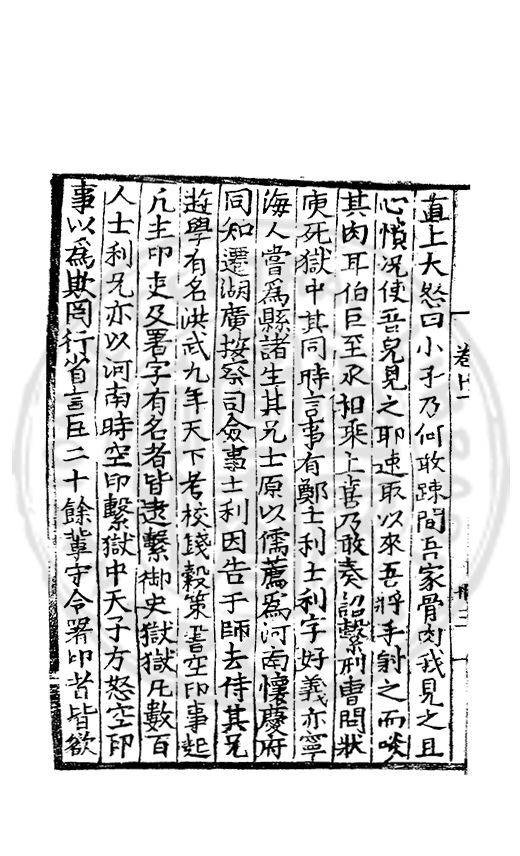 直上大怒曰小子乃何敢疎間吾家骨肉我見之且
心憤况使吾兒見之耶速取以來吾將手射之而啖
其肉耳伯巨至丞相乘上喜乃敢奏詔繫刑曹問狀
庾死獄中其同時言事有鄭士利士利字好義亦寧
海人嘗爲縣諸生其兄士原以儒薦爲河南懷慶府
同知遷湖廣按察司僉事士利因告于師去侍其兄
遊學有名洪武九年天下考校錢穀策書空印事起
凡主印吏及署字有名者皆逮繫御史獄獄凡數百
人士利兄亦以河南時空印繫獄中天子方怒空印
事以爲欺罔行省言臣二十餘輩守令署印者皆欲
卷十